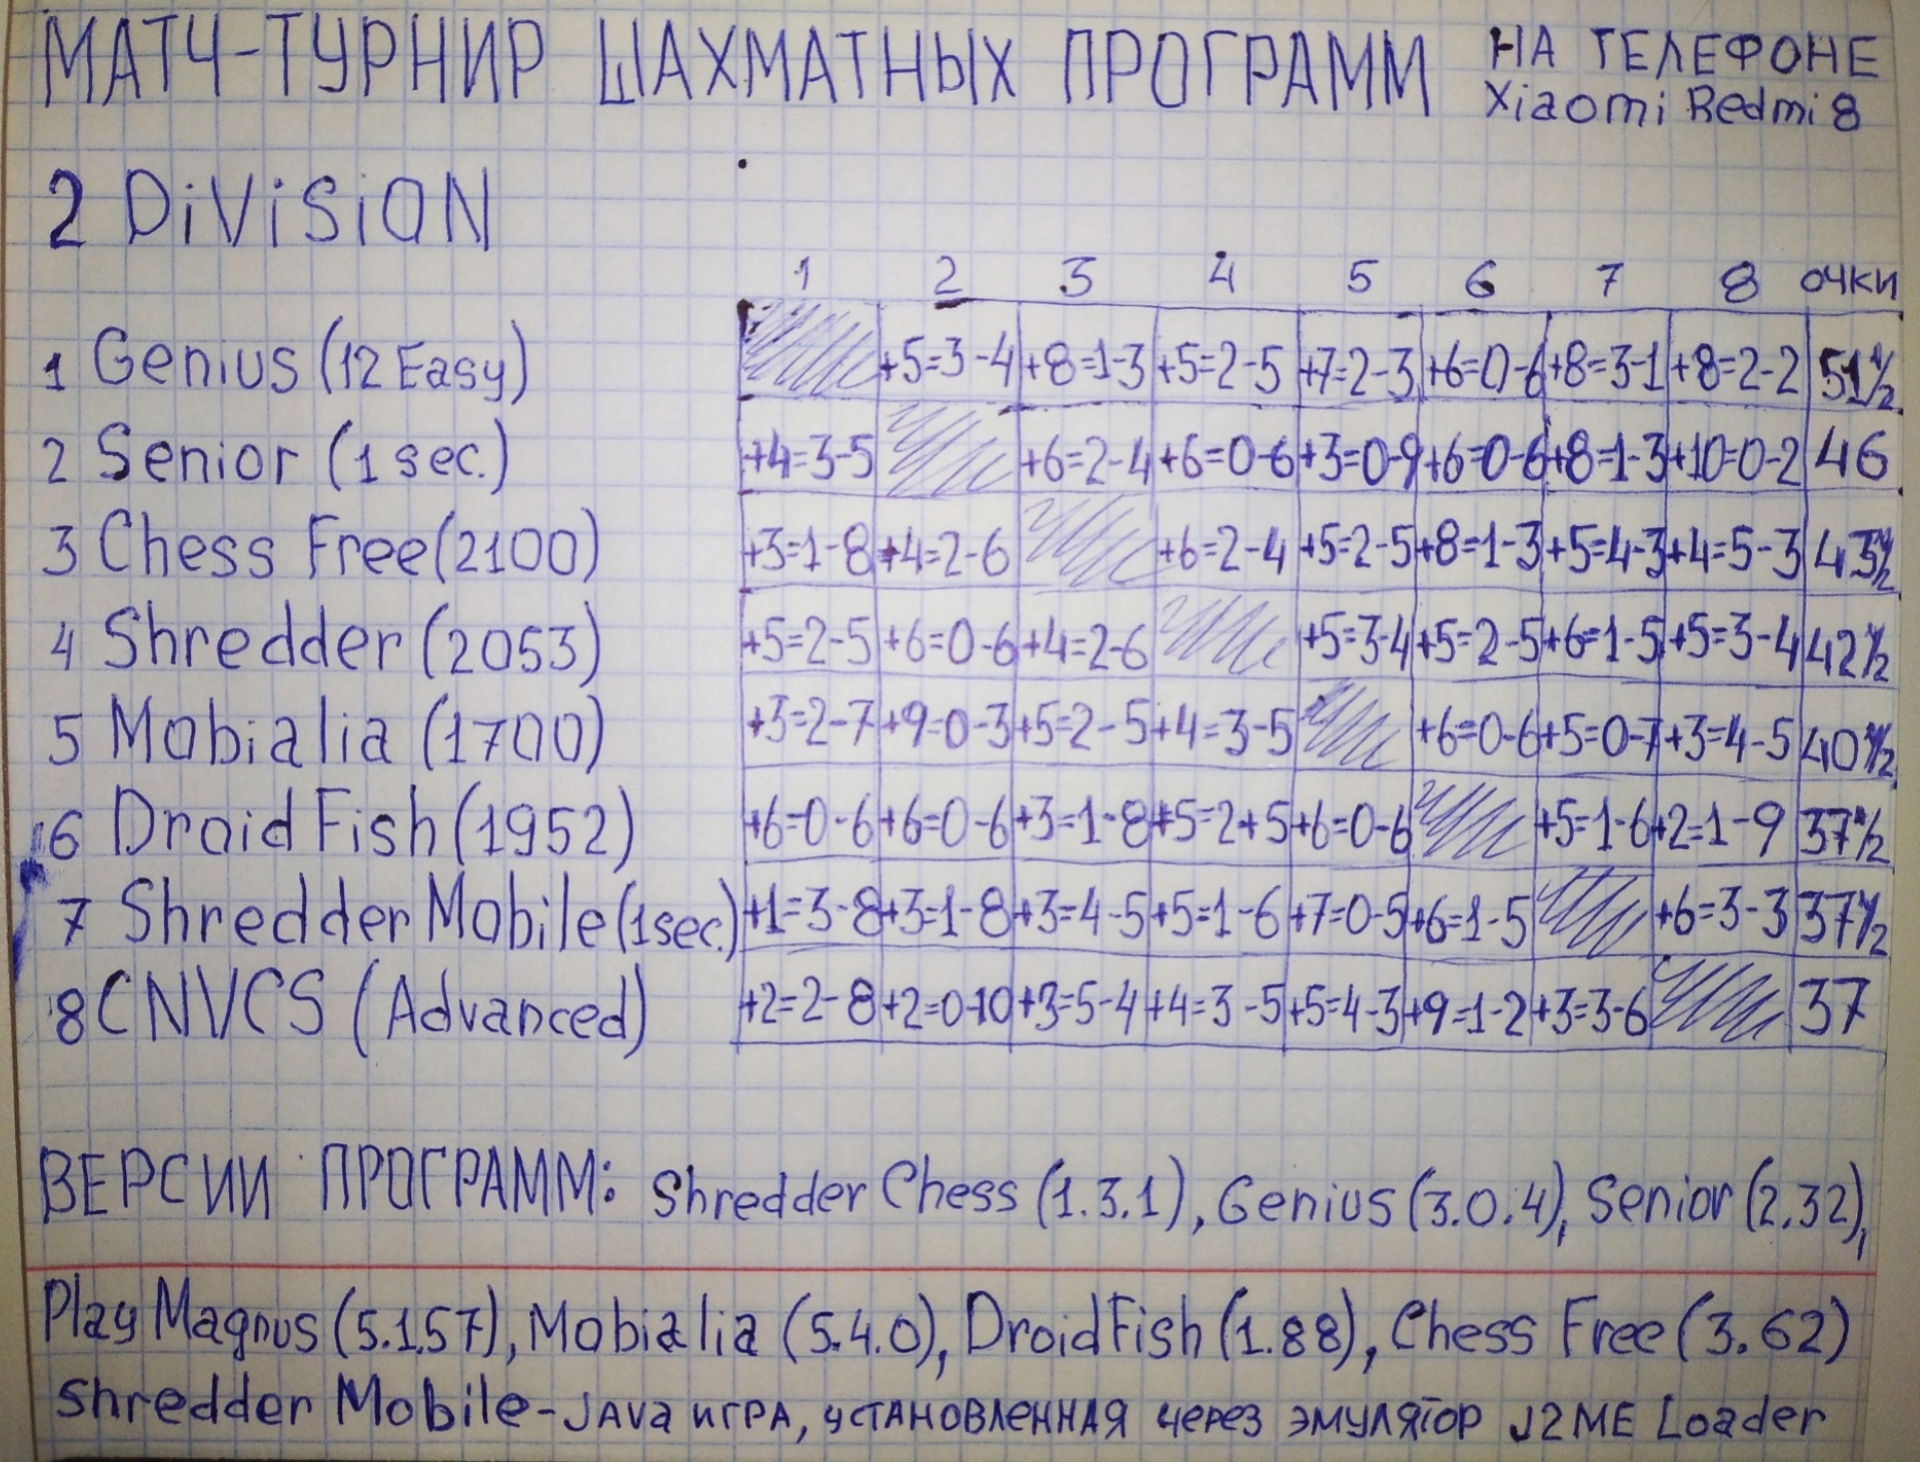 МАТЧ-ТУРНИР ШАХМАТНЫХ ПРОГРАММ НА ТЕЛЕФОНЕ
Xiaomi Redmi 8
2 DiViSiON
1 2 3 4 5 6 7 8 ОЧКИ
1 Genius (12 Easy) +5=3-4 +8=1-3 +5=2-5 +7=2-3 +6=0-6 +8=3-1 +8=2-2 51½
2 Senior (1 sec.) +4=3-5 +6=2-4 +6=0-6 +3=0-9 +6=0-6 +8=1-3 +10=0-2 46
3 Chess Free (2100) +3=1-8 +4=2-6 +6=2-4 +5=2-5 +8=1-3 +5=4-3 +4=5-3 43½
4 Shredder (2053) +5=2-5 +6=0-6 +4=2-6 +5=3-4 +5=2-5 +6=1-5 +5=3-4 42½
5 Mobialia (1700) +3=2-7 +9=0-3 +5=2-5 +4=3-5 +6=0-6 +5=0-7 +3=4-5 40½
6 Droid Fish (1952) +6=0-6 +6=0-6 +3=1-8 +5=2+5 +6=0-6 +5=1-6 +2=1-9 37½
7 Shredder Mobile (1sec.) +1=3-8 +3=1-8 +3=4-5 +5=1-6 +7=0-5 +6=1-5 +6=3-3 37½
8 CNVCS (Advanced) +2=2-8 +2=0-10 +3=5-4 +4=3-5 +5=4-3 +9=1-2 +3=3-6 37
ВЕРСИИ ПРОГРАММ: Shredder Chess (1.3.1), Genius (3.0.4), Senior (2.32),
Play Magnus (5.1.57), Mobialia (5.4.0), Droid Fish (1.88), Chess Free (3.62)
Shredder Mobile-JAVA ИГРА, УСТАНОВЛЕННАЯ ЧЕРЕЗ ЭМУЛЯТОР J2ME Loader